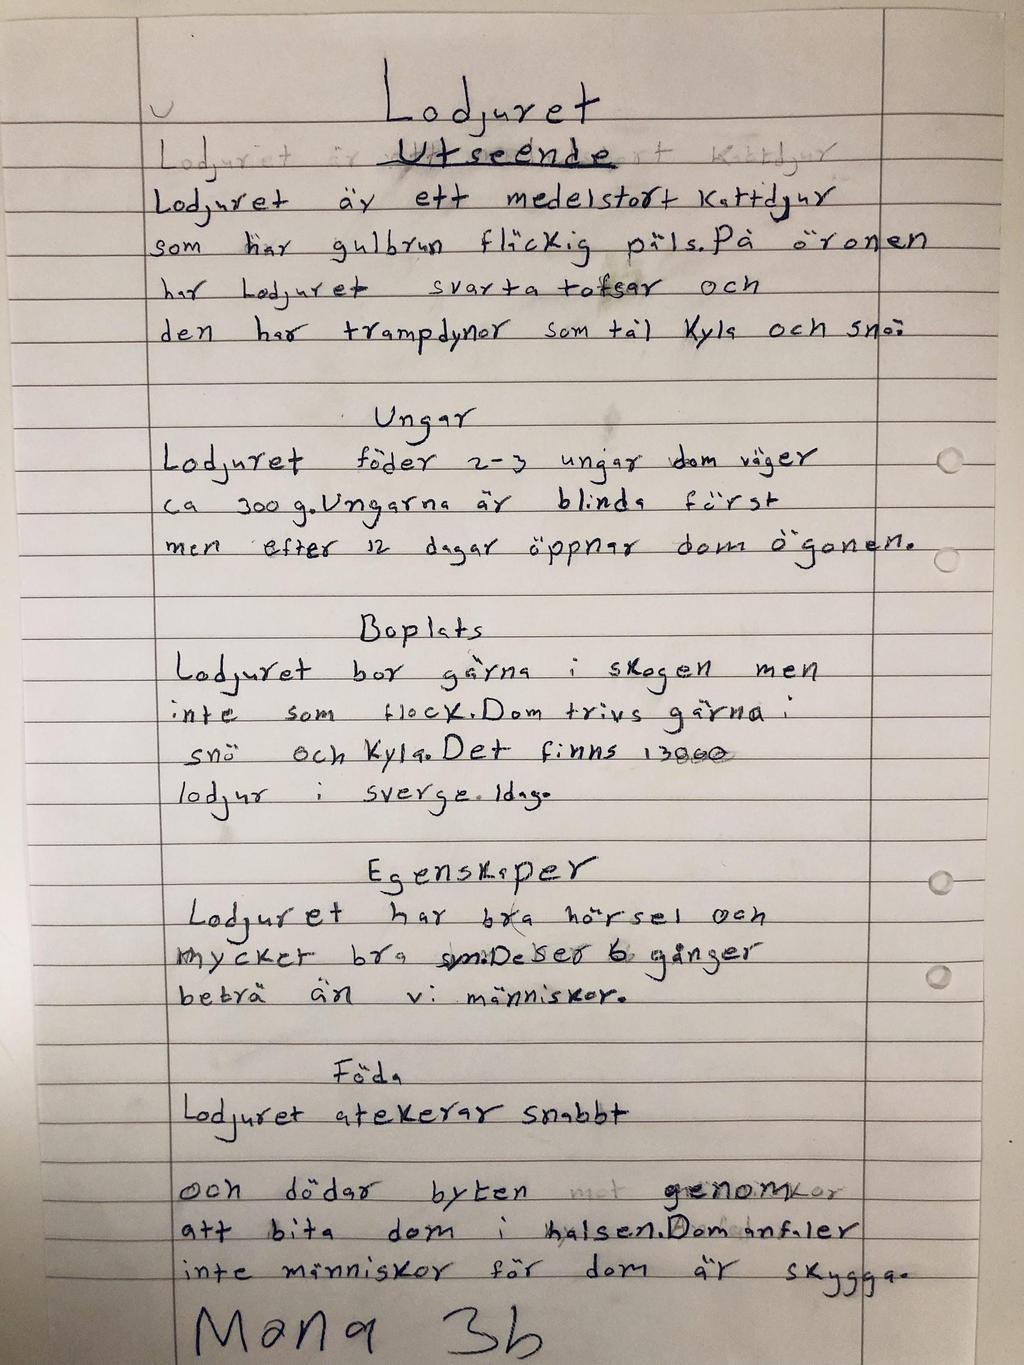 Lodjuret
Utseende
Lodjuret är ett medelstort kattdjur
som har gulbrun fläckig päls. På öronen
har Lodjuret svarta tofsar och
den har trampdynor som tål kyla och snö
Ungar
Lodjuret föder 2-3 ungar dom väger
ca 300 g. Ungarna är blinda först
men efter 12 dagar öppnar dom ögonen.
Boplats
Lodjuret bor gärna i skogen men
inte som flock. Dom trivs gärna i
snö och kyla. Det finns
lodjur i sverge. Idag.
Egenskaper
Lodjuret har bra hörsel och
mycket bra De ser 6 gånger
beträ än vi människor.
Föda
Lodjuret atekerar snabbt
och dödar byten genom
att bita dom i halsen. Dom anfaler
inte människor för dom är skygga.
Mona 3b